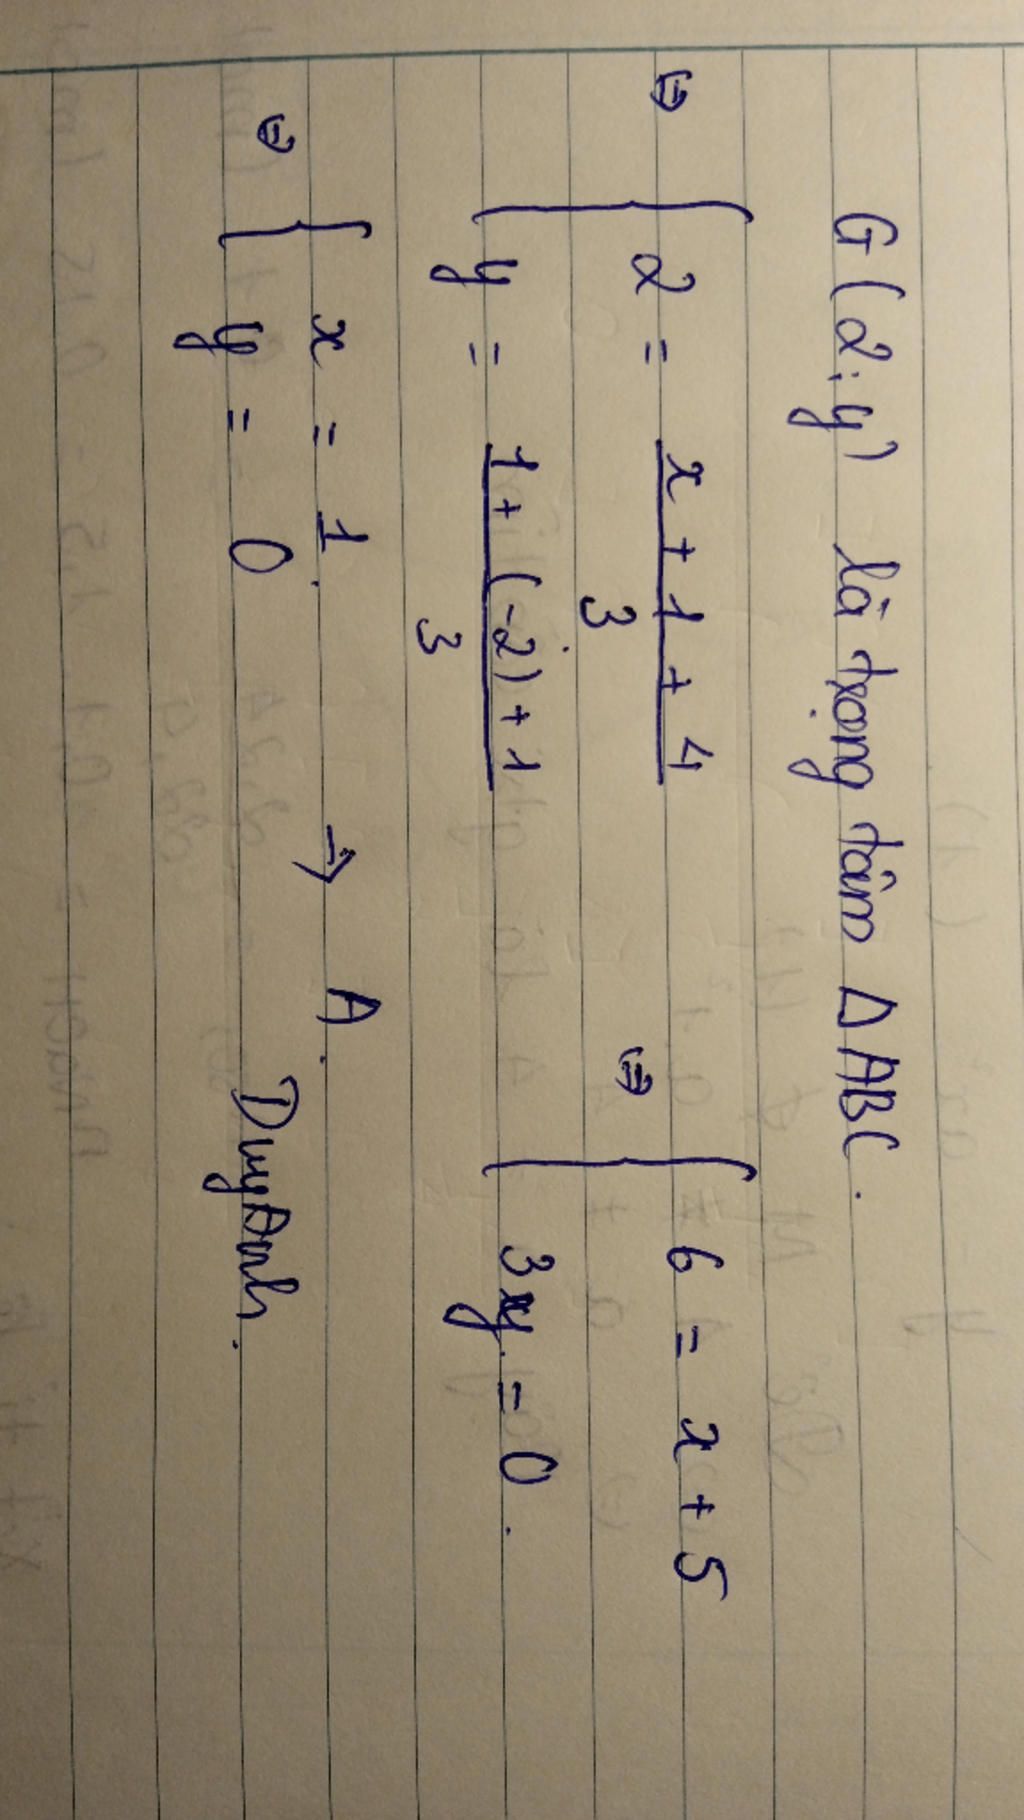 G(2;y) là trọng tâm ΔABC.
⇔ { 2 = (x + 1 + 4)/3
y = (1 + (-2) + 1)/3
⇔ { 6 = x + 5
3y = 0.
⇔ { x = 1.
y = 0
→ A.
DuyAnh.